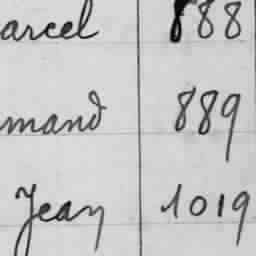 arcel 888
mand 889
Jean 1019